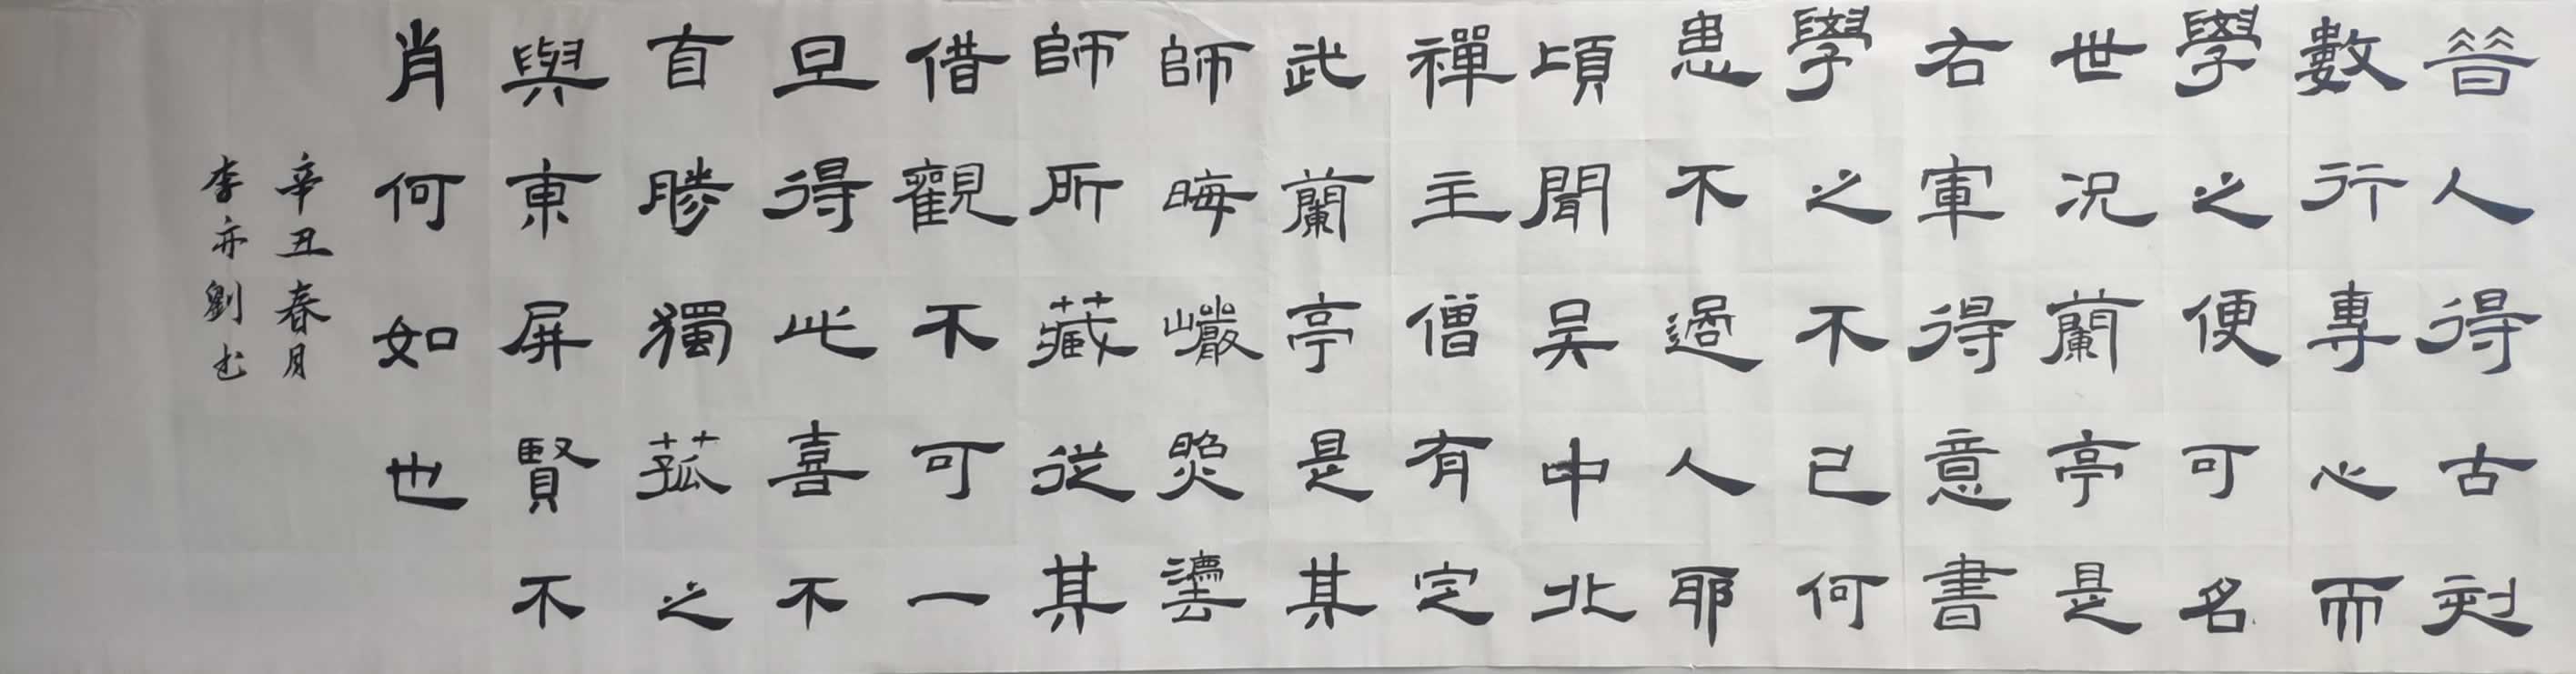 晉人得古刻
數行專心而
學之便可名
世况蘭亭是
右軍得意書
學之不已何
患不過人耶
頃聞吴中北
禪主僧有定
武蘭亭是其
師晦巗照灋
師所藏從其
借觀不可一
旦得此喜不
自勝獨菰之
與東屏賢不
肖何如也
辛丑春月
李亦劉书